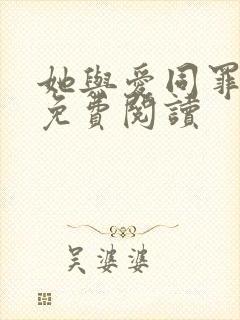 她與愛同罪
免費閱讀
吳婆婆